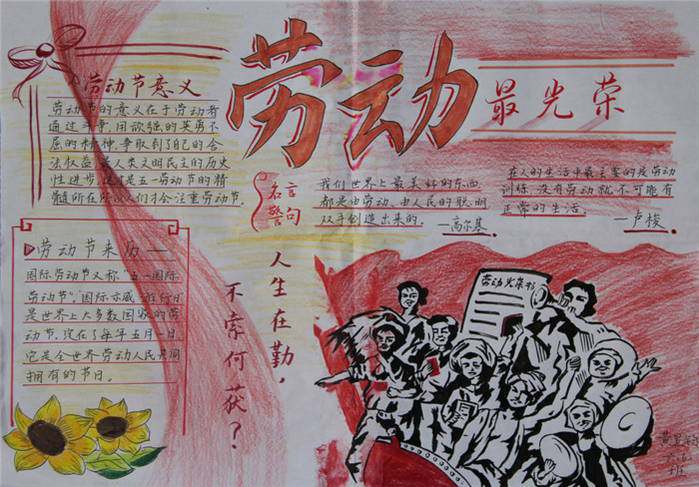 劳动最光荣
劳动节意义
劳动节的意义在于劳动者
通过斗争,用顽强的英勇不
屈的精神,争取到了自己的合
法权益,是人类文明民主的历史
性进步,这才是五一劳动节的精
髓所在,所以人们才会注重劳动节.
名言
警句
我们世界上最美好的东西
都是由劳动、由人民的聪明
双手创造出来的.
—高尔基
在人的生活中最主要的是劳动
训练.没有劳动就不可能有
正常的生活.
—卢梭
劳动节来历——
国际劳动节又称"五一国际
劳动节","国际示威游行日"
是世界上大多数国家的劳
动节.定在了每年五月一日
它是全世界劳动人民共同
拥有的节日.
人生在勤,
不索何获?
劳动光荣